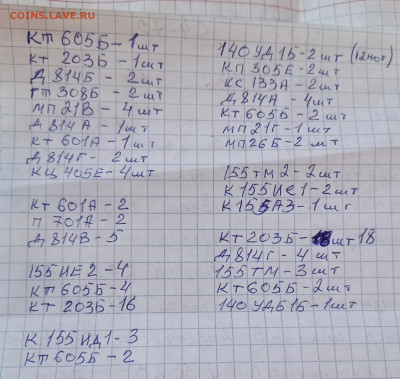 COINS.LAVE.RU
КТ 605Б - 1 шт
КТ 203Б - 1 шт
Д 814Б - 2 шт
ГТ 308Б - 2 шт
МП 21В - 4 шт
Д 814А - 1 шт
КТ 601А - 1 шт
Д 814Г - 2 шт
КЦ 405Е - 4 шт
КТ 601А - 2
П 701А - 2
Д 814В - 5
155ИЕ2 - 4
КТ 605Б - 4
КТ 203Б - 16
К 155ИД1 - 3
КТ 605Б - 2
140УД1Б - 2 шт (12ног)
КП 305Е - 2 шт
КС 133А - 2 шт
Д 814А - 4 шт
КТ 605Б - 2 шт
МП 21Г - 1 шт
МП26Б - 2 шт
155ТМ2 - 2 шт
К 155ИЕ1 - 2 шт
К 155ЛА3 - 1 шт
КТ 203Б - шт 18
Д 814Г - 4 шт
155ТМ - 3 шт
КТ 605Б - 2 шт
140УД1Б - 1 шт